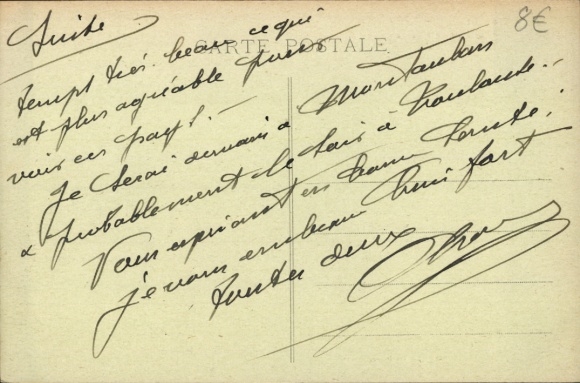 Suite
8€
CARTE POSTALE
tempt très beau ce qui
est plus agréable pour
voir ces pays. —
Je serai demain à Montauban
& probablement le soir à Toulouse. —
Vous espérant en bonne santé.
je vous embrasse bien fort
toutes deux